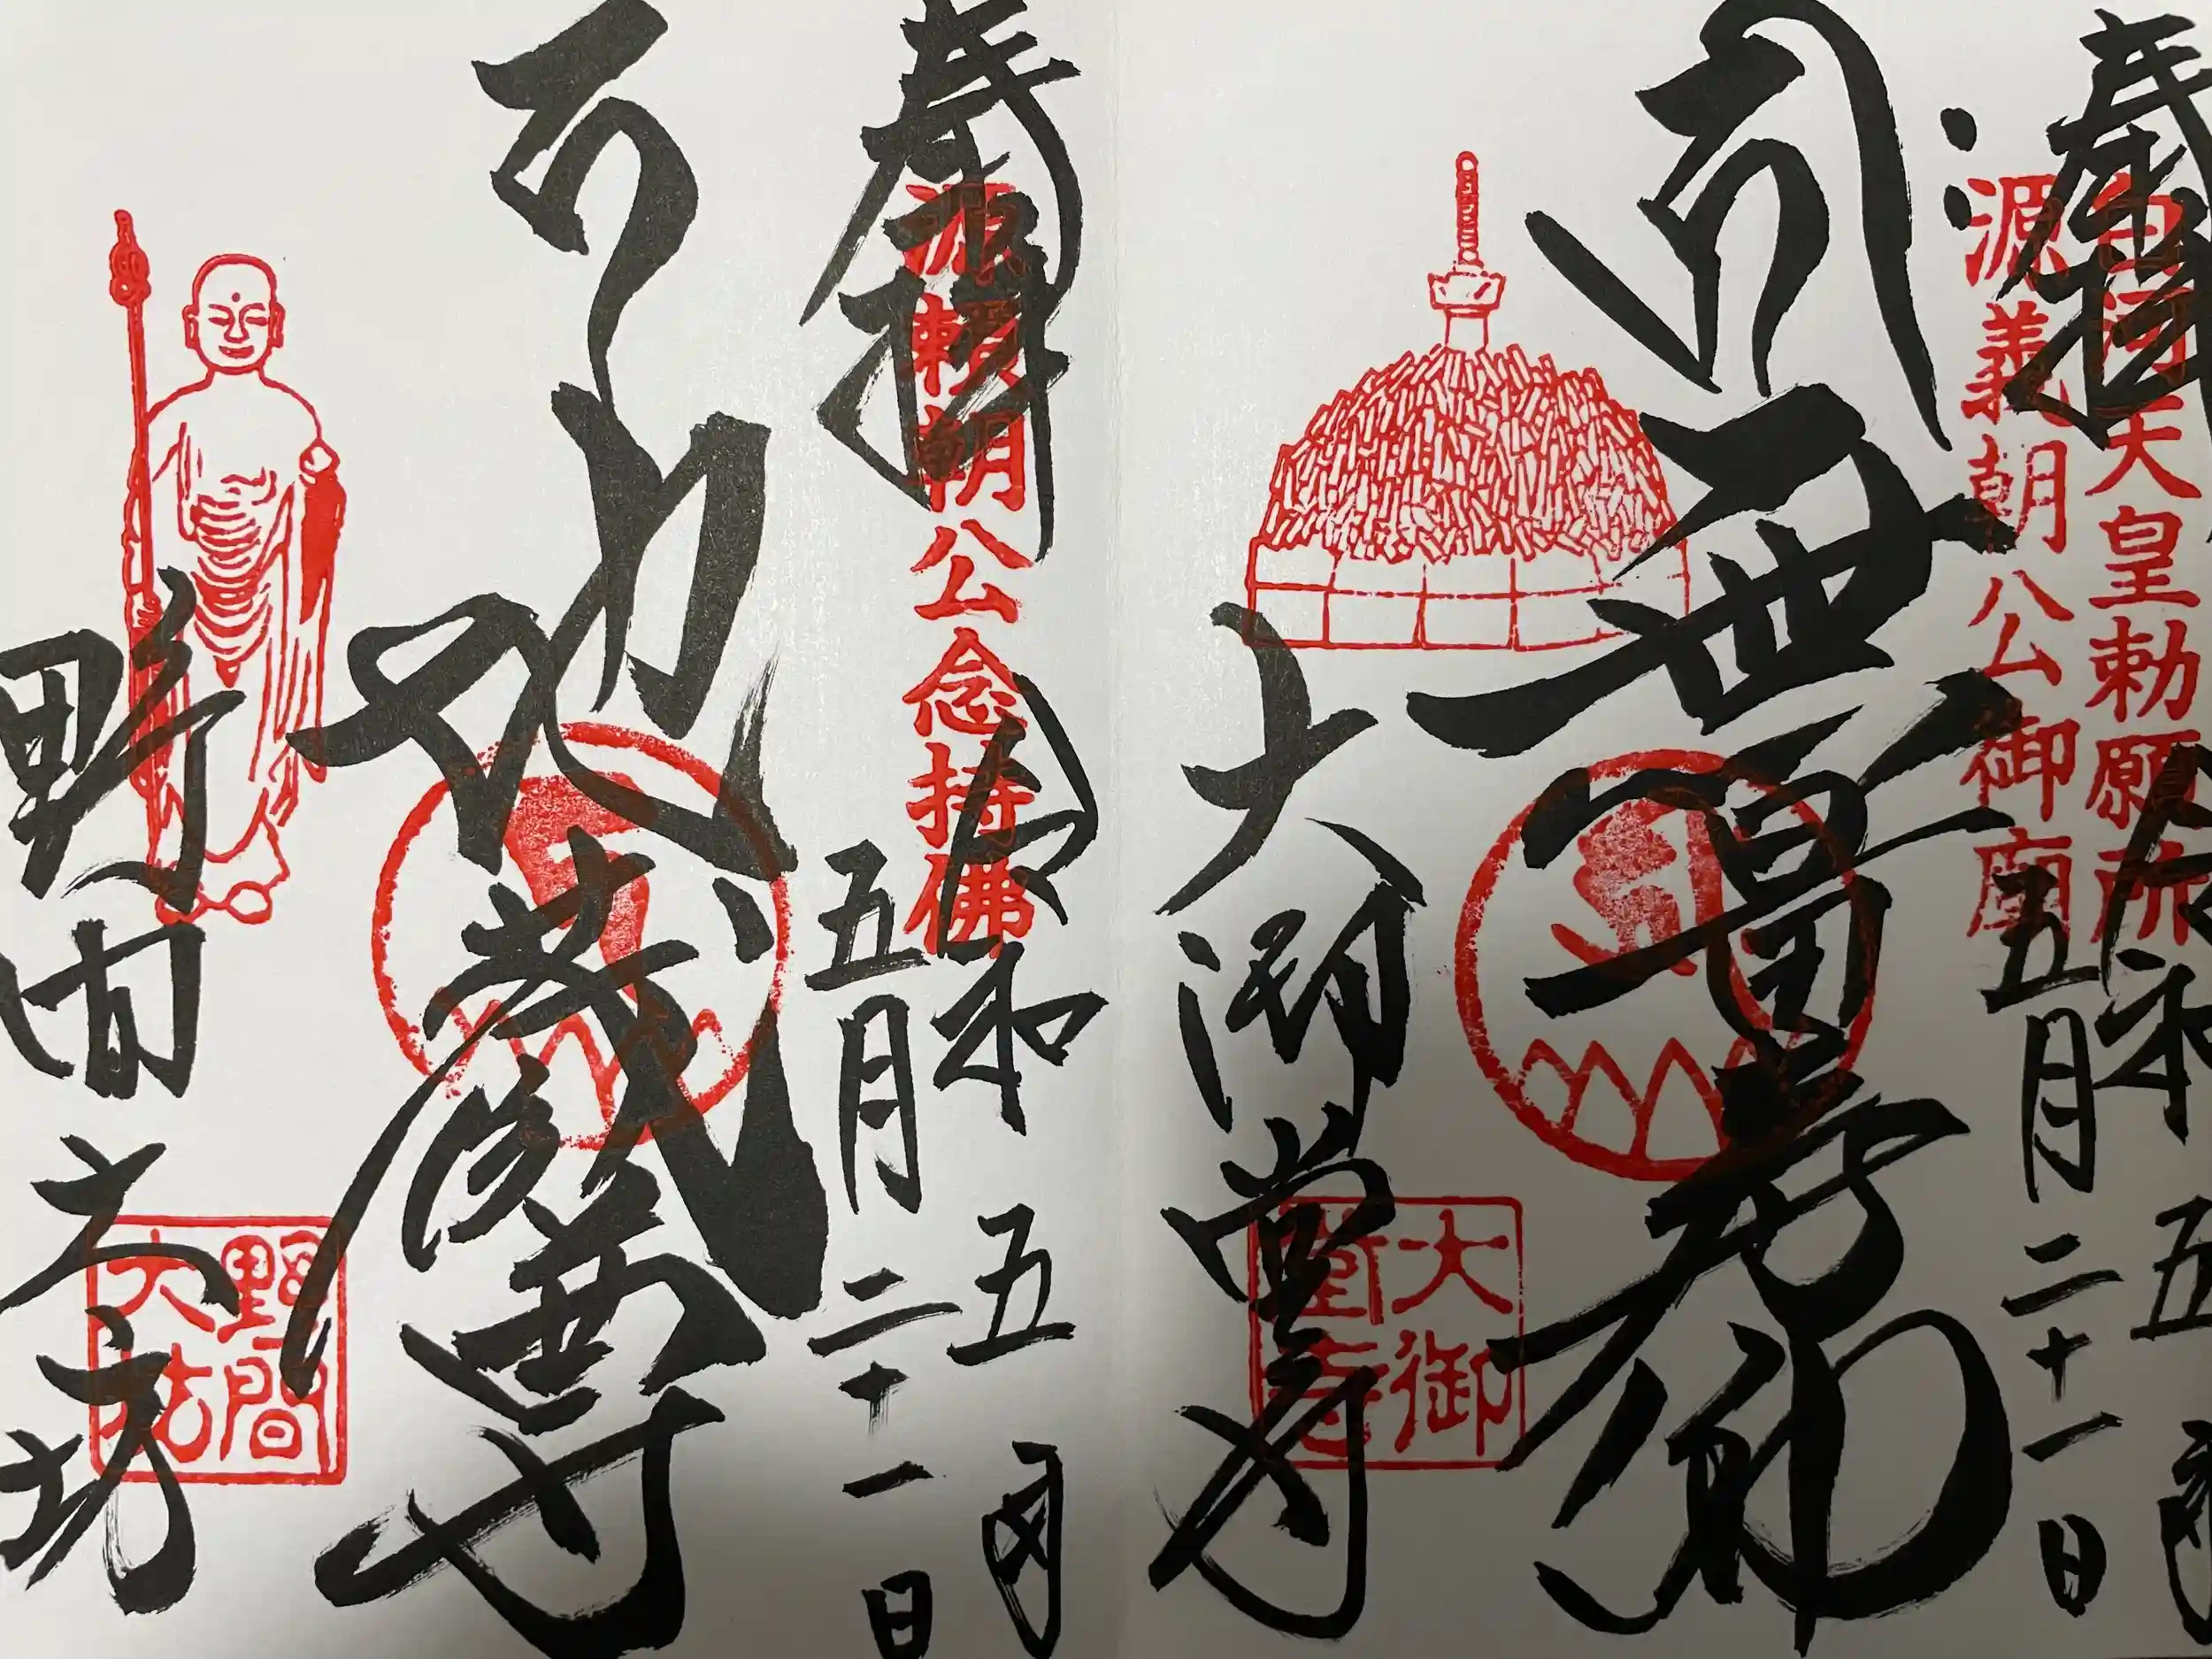 奉拝
白河天皇勅願所
源義朝公御廟
令和五年
五月二十一日
無量寿佛
大御堂寺
大御堂寺
奉拝
源頼朝公念持佛
令和五年
五月二十一日
地蔵尊
野間大坊
野間大坊